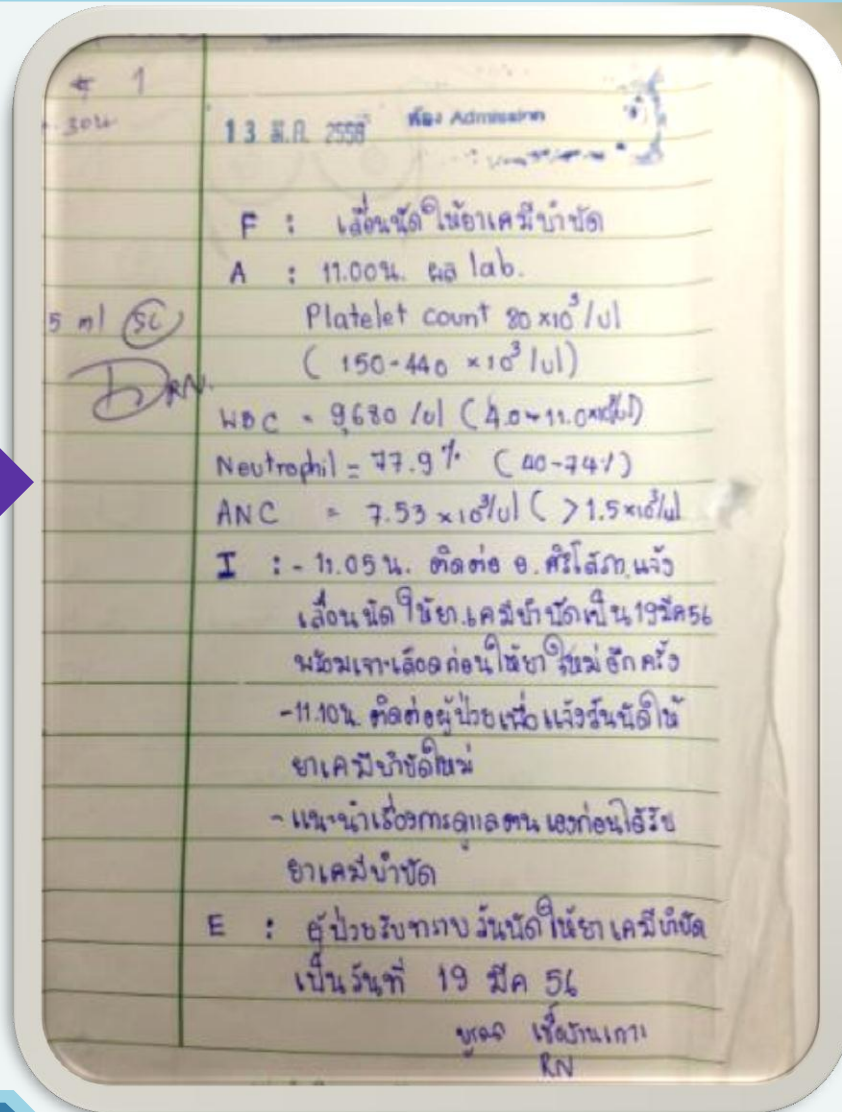 # 1
13 มี.ค. 2556 ห้อง Admission
F : เลื่อนนัดให้ยาเคมีบำบัด
A : 11.00น. ผล lab.
5 ml SC
Platelet count 80 x10³/ul
(150-440 x10³/ul)
RN.
WBC = 9,680 /ul (4.0-11.0x10³/ul)
Neutrophil = 77.9% (40-74%)
ANC = 7.53 x10³/ul ( >1.5x10³/ul
I : - 11.05 น. ติดต่อ อ. แจ้ง
เลื่อนนัดให้ยาเคมีบำบัดเป็น 19มีค56
พร้อมเจาะเลือดก่อนให้ยาใหม่อีกครั้ง
-11.10น. ติดต่อผู้ป่วยเพื่อแจ้งวันนัดให้
ยาเคมีบำบัดใหม่
- แนะนำเรื่องการดูแลตนเองก่อนได้รับ
ยาเคมีบำบัด
E : ผู้ป่วยรับทราบวันนัดให้ยาเคมีบำบัด
เป็นวันที่ 19 มีค 56
RN